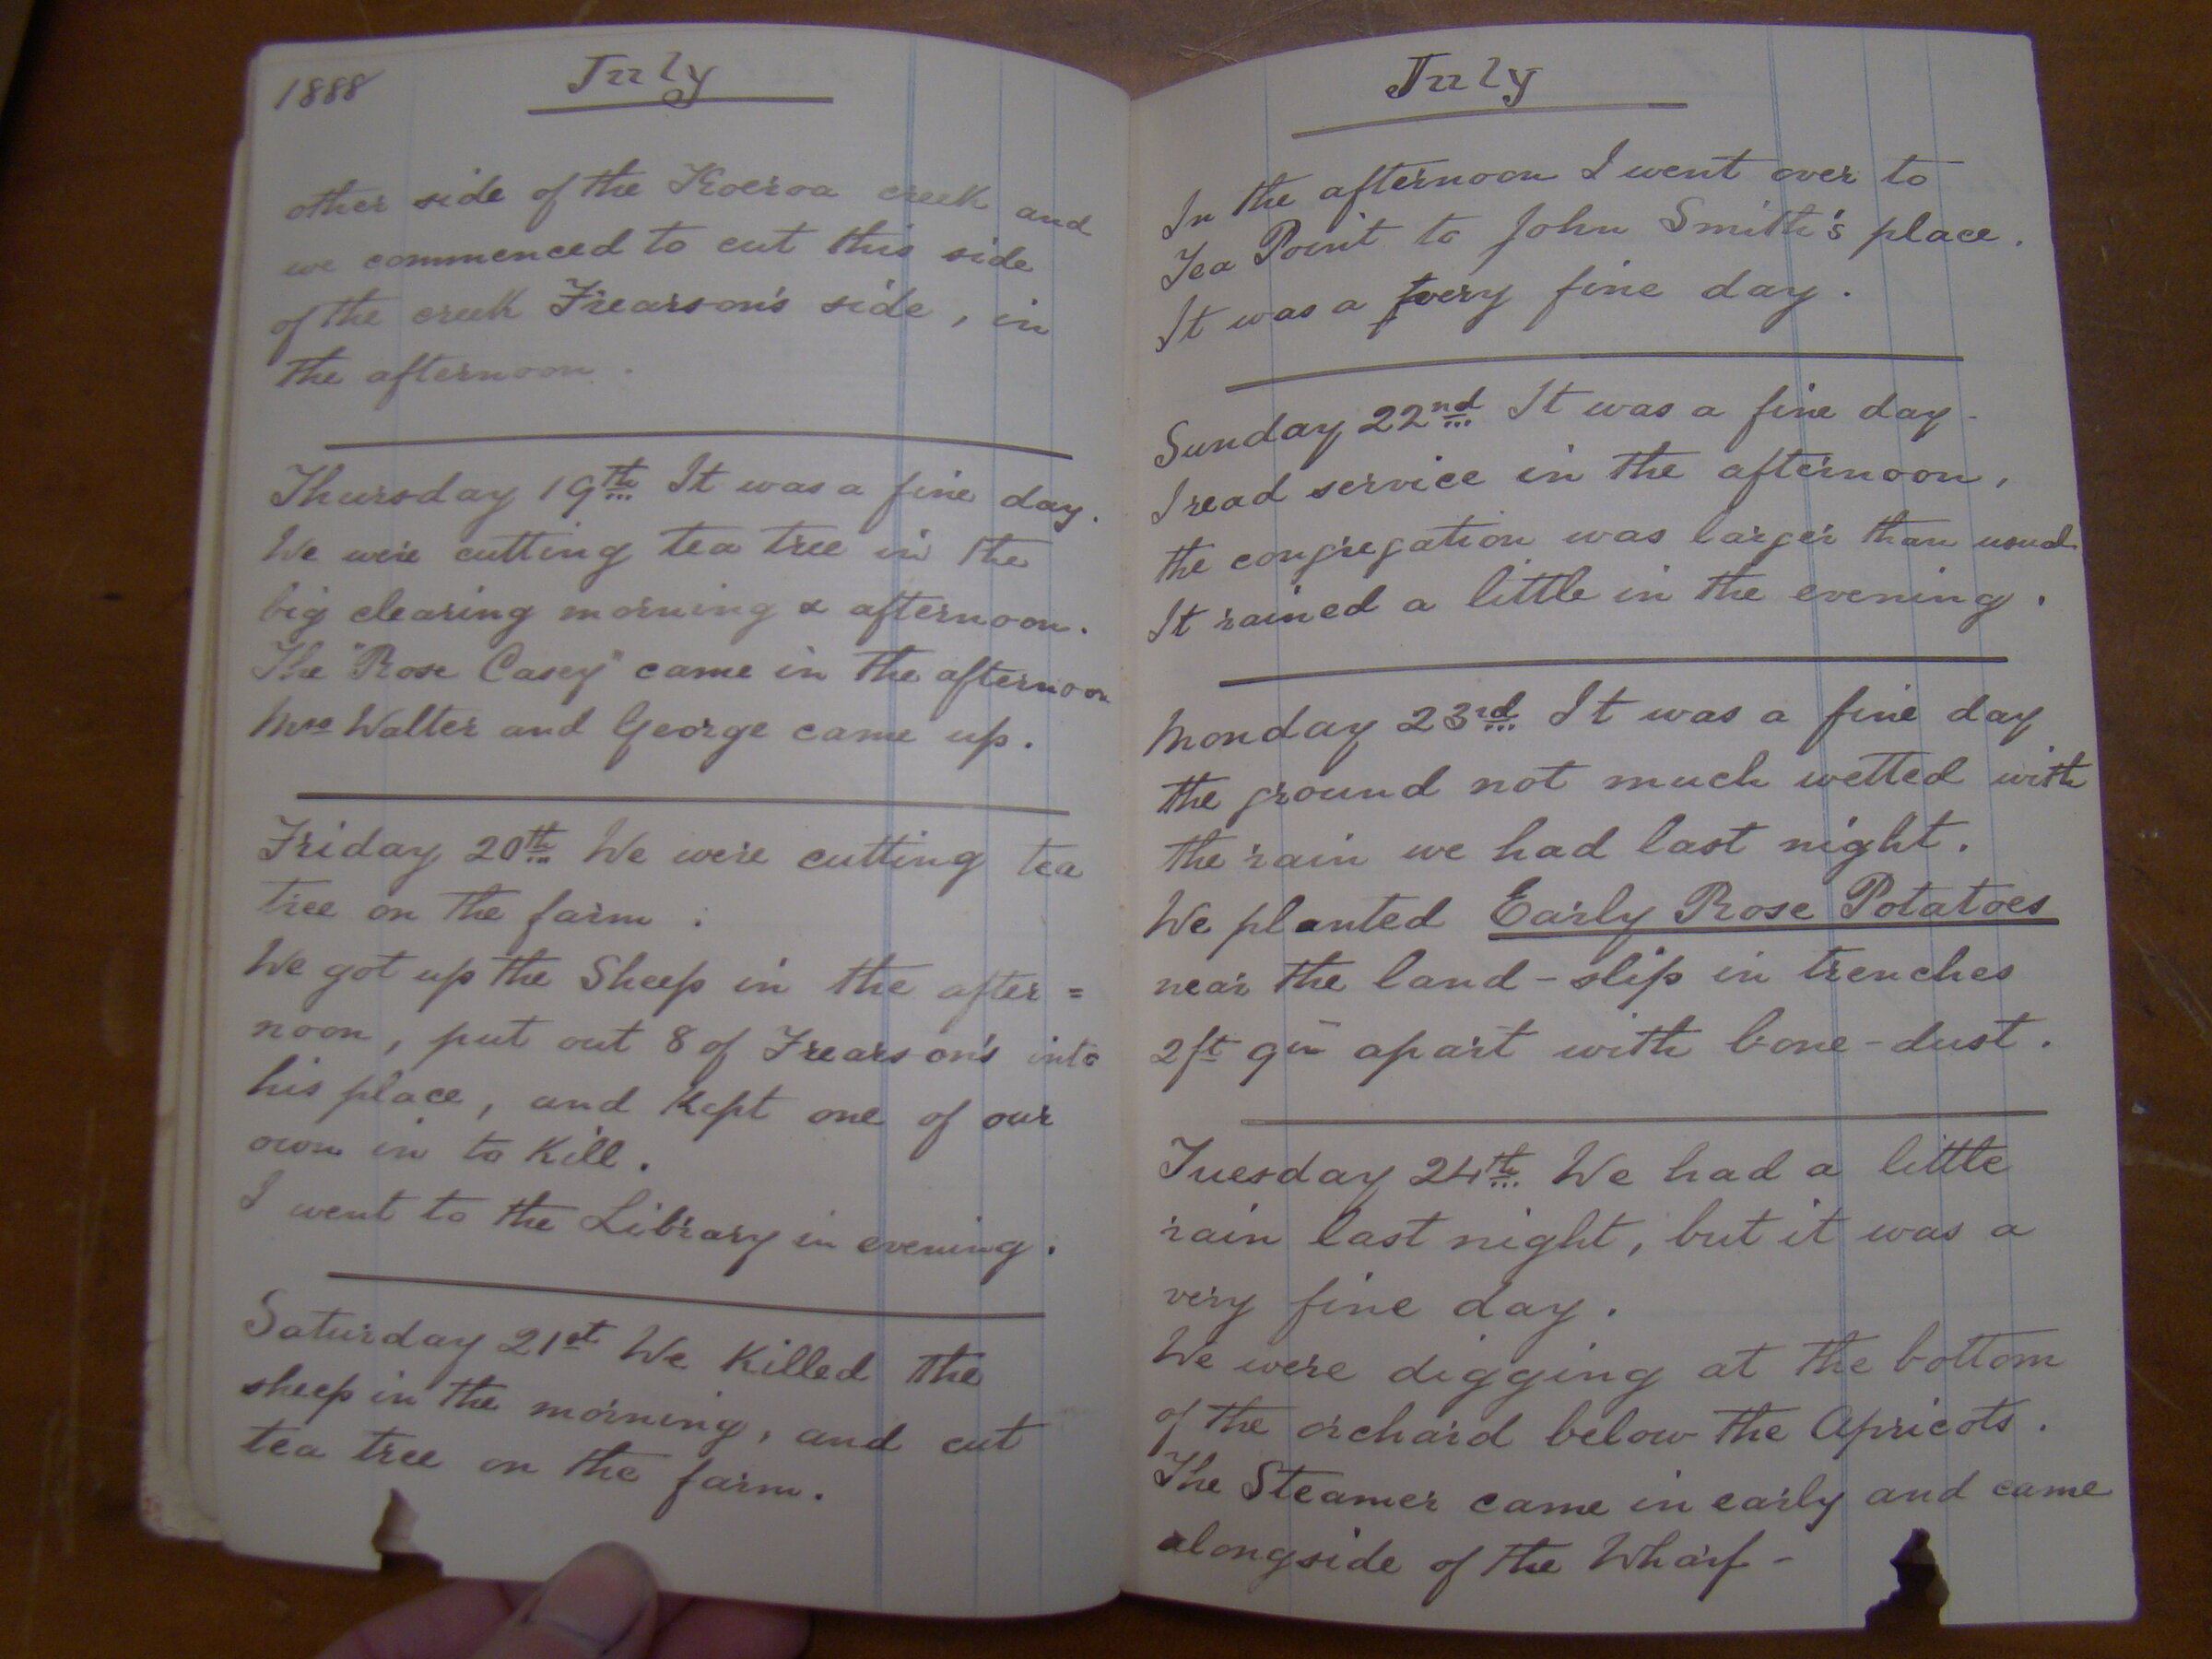 1888
July
other side of the Koeroa creek and
we commenced to cut this side
of the creek Frearson's side, in
the afternoon.
Thursday 19th It was a fine day.
We were cutting tea tree in the
big clearing morning & afternoon.
The "Rose Casey" came in the afternoon
Mrs Walter and George came up.
Friday 20th We were cutting tea
tree on the farm.
We got up the Sheep in the after=
noon, put out 8 of Frearson's into
his place, and kept one of our
own in to kill.
I went to the Library in evening.
Saturday 21st We killed the
sheep in the morning, and cut
tea tree on the farm.
July
In the afternoon I went over to
Tea Point to John Smith's place.
It was a very fine day.
Sunday 22nd It was a fine day-
I read service in the afternoon,
the congregation was larger than usual
It rained a little in the evening.
Monday 23rd It was a fine day
the ground not much wetted with
the rain we had last night.
We planted Early Rose Potatoes
near the land-slip in trenches
2ft 9in apart with bone-dust.
Tuesday 24th We had a little
rain last night, but it was a
very fine day.
We were digging at the bottom
of the orchard below the Apricots.
The Steamer came in early and came
alongside of the Wharf-